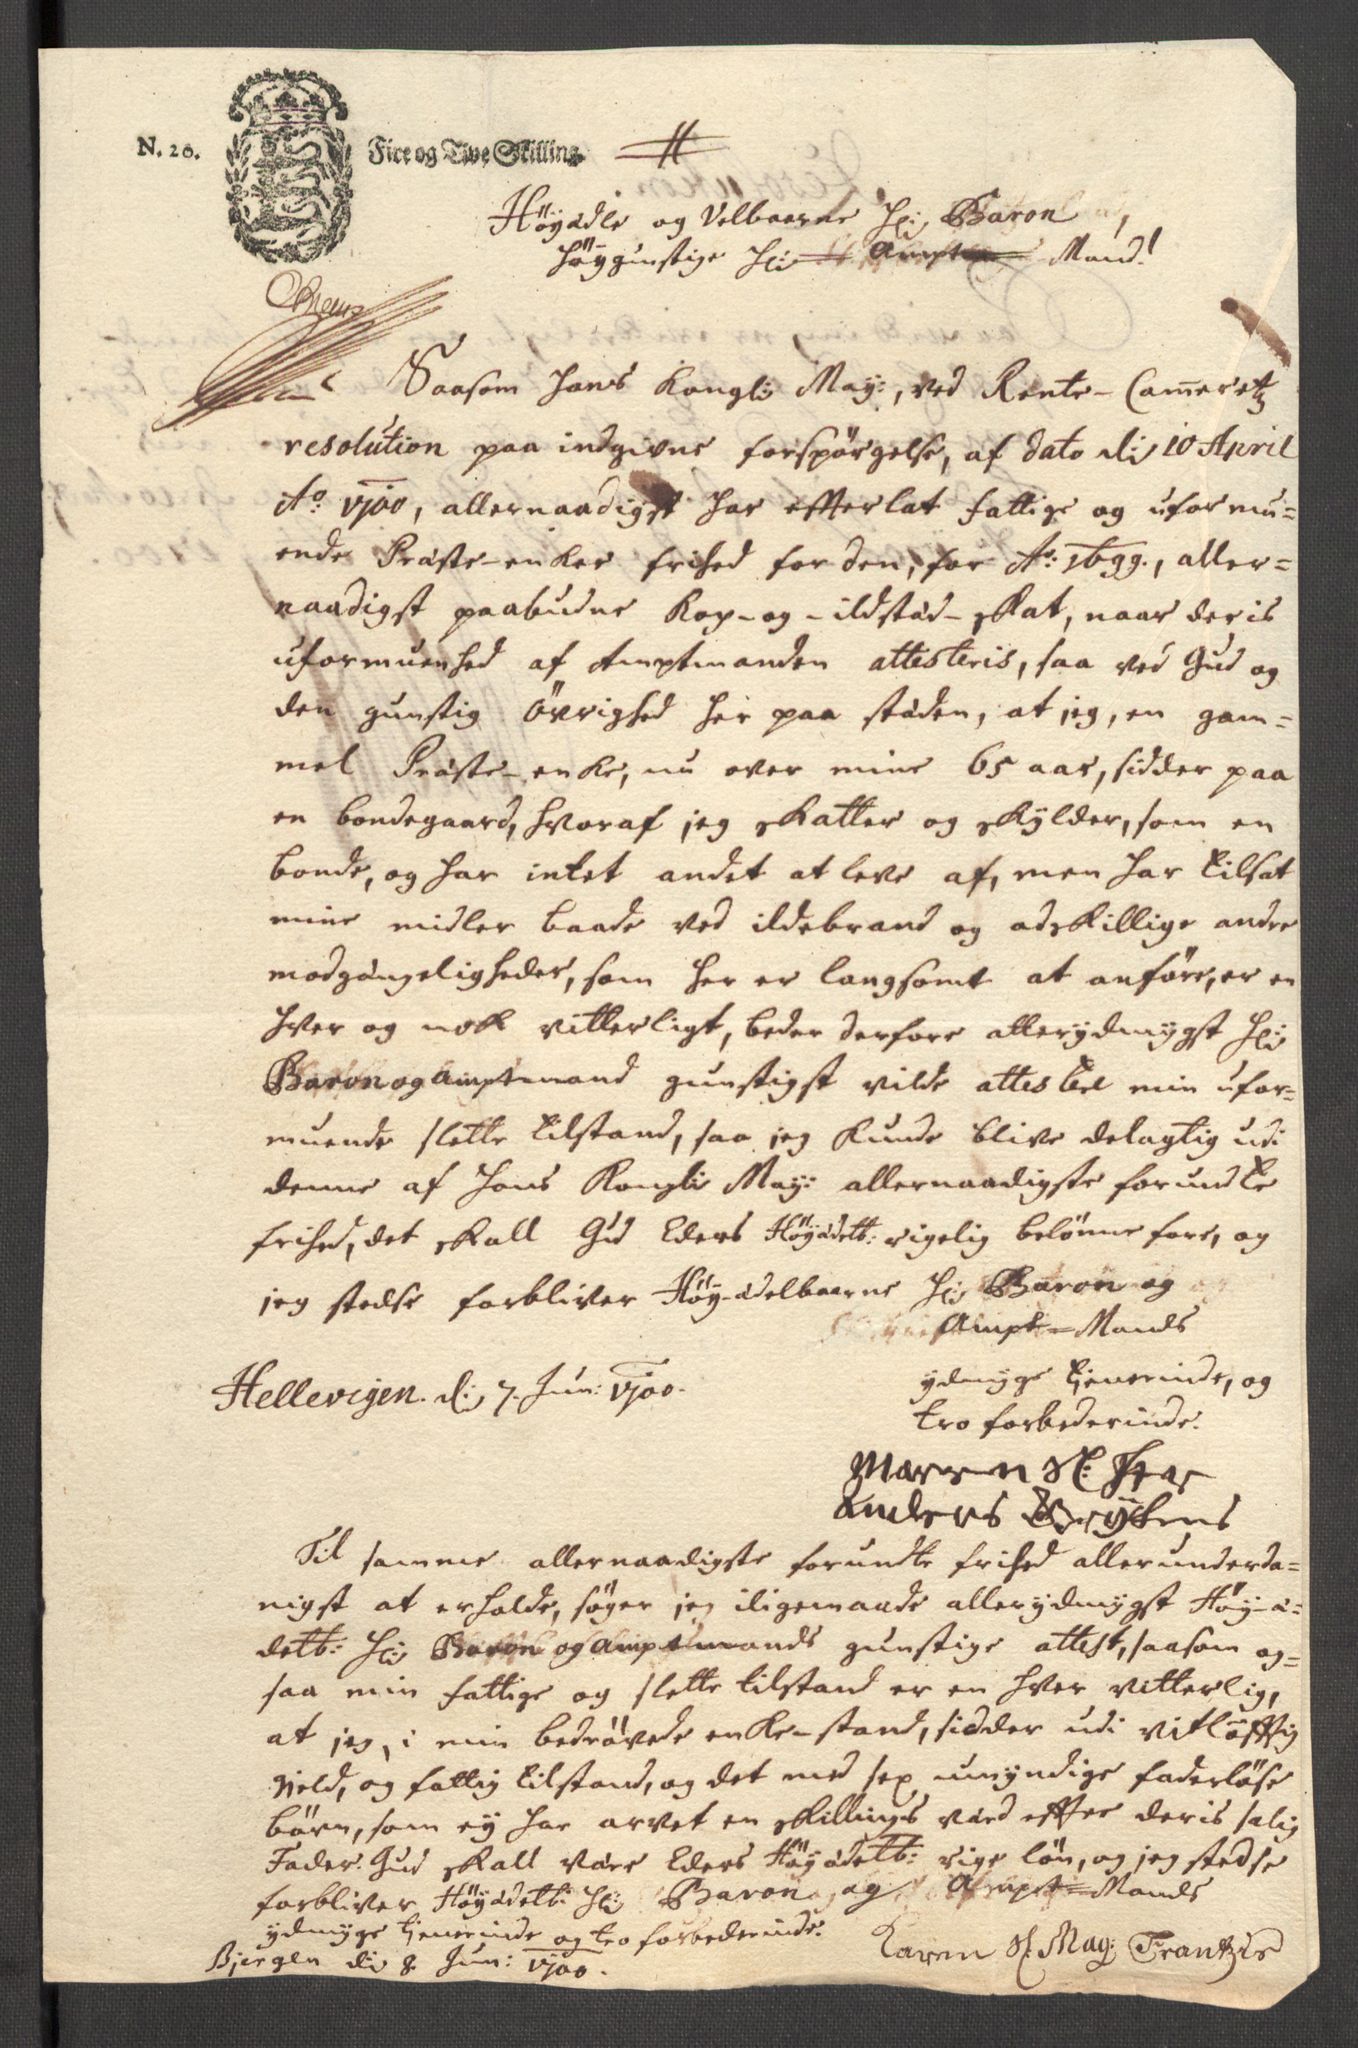 N. 20.
Fire og Tive Skilling.
Höyædle og Velbaarne Hr: Baron,
höygunstige Hr: Ampt Mand!
Saasom Hans Kongl: May:, ved Rente-Cam̅eretz
resolution paa indgivne forspörgelse, af dato di 10 April
Ao: vj00, allernaadigst har effterlat fattige og uformu=
ende Præste-enker frihed for den, for Ao: 1699., aller=
naadigst paabudne Kop-og-ildstæd-skat, naar deris
uformuenhed af Amptmanden attesteris, saa ved Gud og
den gunstig övrighed her paa stæden, at jeg, en gam=
mel Præste-enke, nu over mine 65 aar, sidder paa
en bondegaard, hvoraf jeg skatter og skylder, som en
bonde, og har intet andet at leve af, men har tilsat
mine midler baade ved ildebrand og adskillige andre
modgængeligheder, som her er langsomt at anföre, er en
hver og nok vitterligt, beder derfore allerydmygst Hr:
Baron og Amptmand gunstigst vilde attestel min ufor=
muende slette tilstand, saa jeg kunde blive delagtig udi
denne af Hans Kongl: May: allernaadigste forundte
frihed, det skall Gud Eders Höyædelb: rigelig belönne fore, og
jeg stedse forbliver Höy-ædelbaarne Hr: Baron og
Ampt-Mands
ydmyge tjenerinde, og
tro forbederinde.
Hellevigen. di 7. Jun: vj00.
Marren Sl: Her
Anders
Til samme allernaadigste forundte frihed allerunderda=
nigst at erholde, söger jeg iligemaade allerydmygst Höy-æ=
delb: Hr: Baron og Amptmands gunstige attest, saasom og=
saa min fattige og slette tilstand er en hver vitterlig,
at jeg, i min bedrövede enke-stand, sidder udi vitlöfftig
gield, og fattig tilstand, og det med sex umyndige faderlöse
börn, som ey har arvet en skillings værd effter deris salig
Fader. Gud skall være Eders Höyædelb: rige lön, og jeg stedse
forbliver Höyædelb: Hr: Baron og Ampt-Mands
ydmyge tjenerinde og tro forbederinde.
Bjergen di 8 Jun: vj00.
Karen Sl. Mag: Frantzis